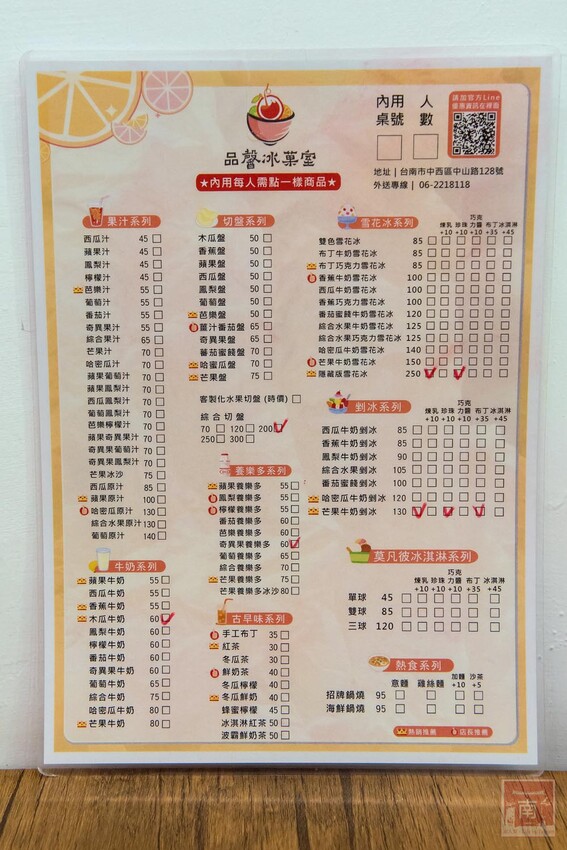 內用 人
桌號 數
請加官方Line
優惠資訊在裡面
品馨冰菓室
★內用每人需點一樣商品★
地址 | 台南市中西區中山路128號
外送專線 | 06-2218118
果汁系列
西瓜汁 45
蘋果汁 45
鳳梨汁 45
檸檬汁 45
芭樂汁 55
葡萄汁 55
番茄汁 55
奇異果汁 55
綜合果汁 65
芒果汁 70
哈密瓜汁 70
蘋果葡萄汁 70
蘋果鳳梨汁 70
西瓜鳳梨汁 70
葡萄鳳梨汁 70
芭樂檸檬汁 70
蘋果奇異果汁 70
葡萄奇異果汁 70
奇異果鳳梨汁 70
芒果冰沙 75
西瓜原汁 85
蘋果原汁 100
哈密瓜原汁 130
綜合水果原汁 130
葡萄原汁 140
牛奶系列
蘋果牛奶 55
西瓜牛奶 55
香蕉牛奶 55
木瓜牛奶 60
鳳梨牛奶 60
檸檬牛奶 60
番茄牛奶 60
奇異果牛奶 60
葡萄牛奶 65
綜合牛奶 75
哈密瓜牛奶 80
芒果牛奶 80
切盤系列
木瓜盤 50
香蕉盤 50
蘋果盤 50
西瓜盤 50
鳳梨盤 50
葡萄盤 50
芭樂盤 50
薑汁番茄盤 65
奇異果盤 60
蕃茄蜜餞盤 70
哈蜜瓜盤 70
芒果盤 75
客製化水果切盤 (時價)
綜合切盤
70 120 200
250 300
養樂多系列
蘋果養樂多 55
鳳梨養樂多 55
檸檬養樂多 55
番茄養樂多 60
芭樂養樂多 60
奇異果養樂多 60
葡萄養樂多 65
綜合養樂多 70
芒果養樂多 75
芒果養樂多冰沙 80
古早味系列
手工布丁 35
紅茶 30
冬瓜茶 30
鮮奶茶 40
冬瓜檸檬 40
冬瓜鮮奶 40
蜂蜜檸檬 45
冰淇淋紅茶 50
波霸鮮奶茶 50
雪花冰系列
巧克
煉乳 珍珠 力醬 布丁 冰淇淋
+10 +10 +10 +35 +45
雙色雪花冰 85
布丁牛奶雪花冰 85
布丁巧克力雪花冰 85
香蕉牛奶雪花冰 100
西瓜牛奶雪花冰 100
香蕉巧克力雪花冰 100
番茄蜜餞牛奶雪花冰 120
綜合水果牛奶雪花冰 125
綜合水果巧克力雪花冰 125
哈密瓜牛奶雪花冰 140
芒果牛奶雪花冰 150
隱藏版雪花冰 250
剉冰系列
巧克
煉乳 珍珠 力醬 布丁 冰淇淋
+10 +10 +10 +35 +45
西瓜牛奶剉冰 85
香蕉牛奶剉冰 85
鳳梨牛奶剉冰 90
綜合水果剉冰 105
番茄牛奶剉冰 100
哈密瓜牛奶剉冰 120
芒果牛奶剉冰 130
莫凡彼冰淇淋系列
巧克
煉乳 珍珠 力醬 布丁 冰淇淋
+10 +10 +10 +35 +45
單球 45
雙球 85
三球 120
熱食系列
加麵 沙茶
意麵 雞絲麵 +10 +5
招牌鍋燒 95
海鮮鍋燒 95
熱銷推薦 店長推薦
南